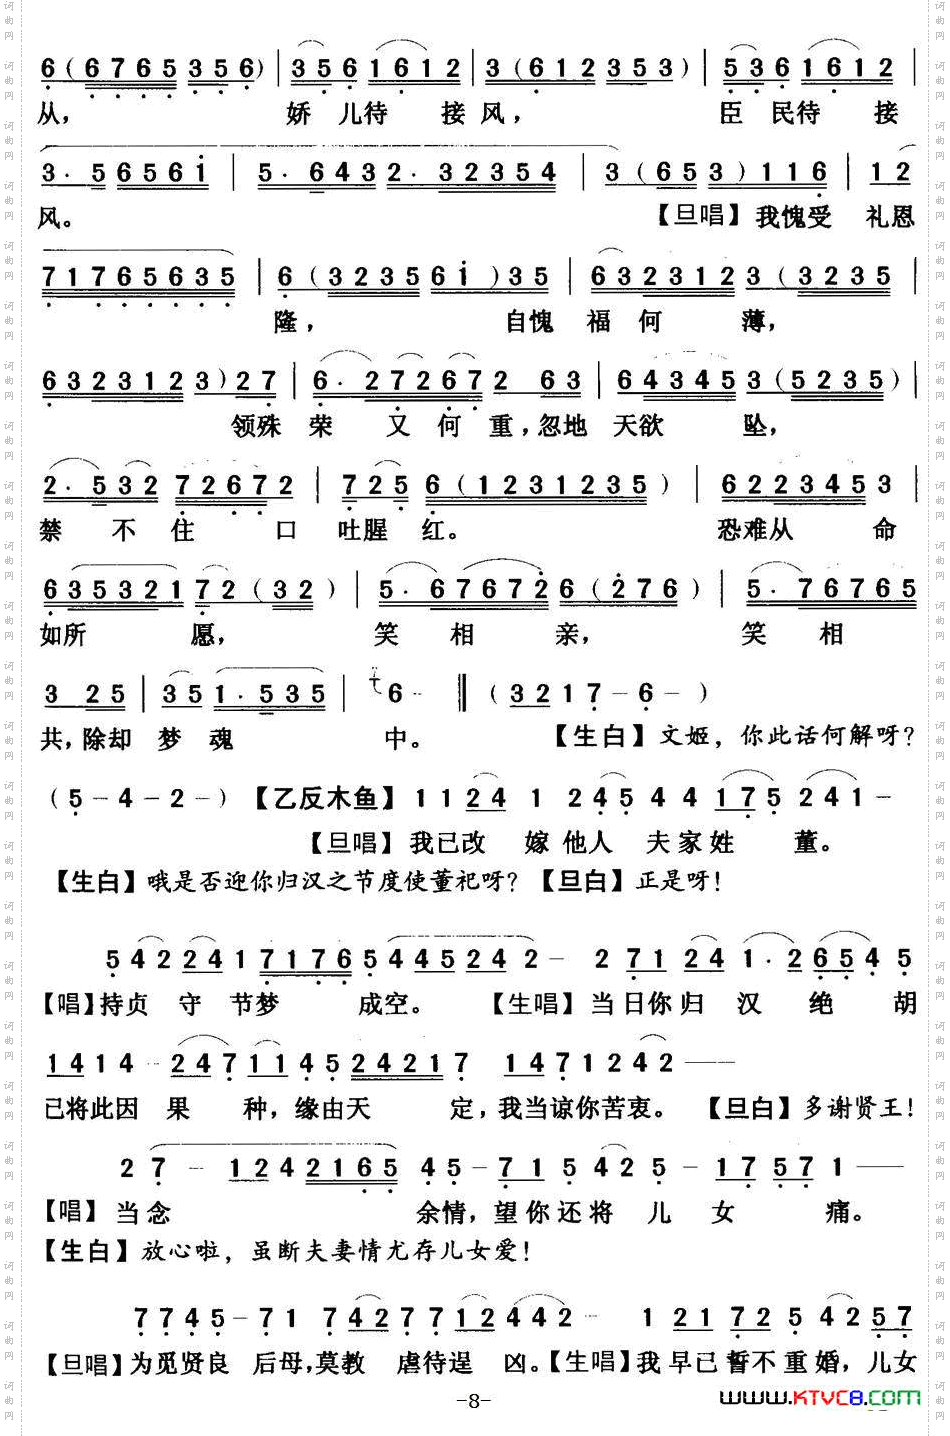 6(6765356)|356 1612|3(612353)|536 1612|
从， 娇儿待 接风， 臣民待 接
3·56561|5·6432·32354|3(653)116|12
风。 【旦唱】我愧受 礼恩
71765635|6(323561)35|6323123(3235|
隆， 自愧 福何 薄，
6323123)27|6·27267263|643453(5235)|
领殊 荣 又 何 重，忽地 天欲 坠，
2·532 72672|725 6(1231235)|6223453|
禁 不 住 口 吐腥 红。 恐难从 命
635321 72(32)|5·676726(276)|5·76765
如所 愿， 笑 相 亲， 笑 相
3 25|351·535|6--‖(3217-6-)
共，除却 梦 魂 中。 【生白】文姬，你此话何解呀？
(5-4-2-)【乙反木鱼】1124 1 2454417 5241-
【旦唱】我已改 嫁他人 夫家姓 董。
【生白】哦是否迎你归汉之节度使董祀呀？【旦白】正是呀！
542241717654452 42- 271241·26545
【唱】持贞 守 节梦 成空。 【生唱】当日你归 汉 绝 胡
1414-247114524217 1471242——
已将此因 果 种，缘由天 定，我当谅你苦衷。 【旦白】多谢贤王！
27-1242165 45-7154255-17571——
【唱】当念 余情，望你还将 儿 女 痛。
【生白】放心啦，虽断夫妻情尤存儿女爱！
7745-71 7427712442-- 121725 4257
【旦唱】为觅贤良 后母，莫教 虐待逞 凶。【生唱】我早已誓不重婚，儿女
-8-
www.KTVC8.com